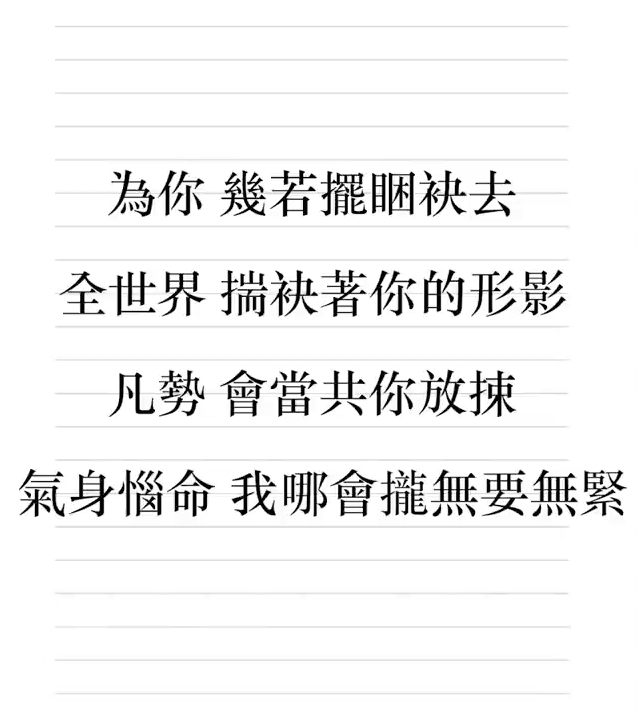 為你 幾若擺睏袂去
全世界 揣袂著你的形影
凡勢 會當共你放捒
氣身惱命 我哪會攏無要無緊